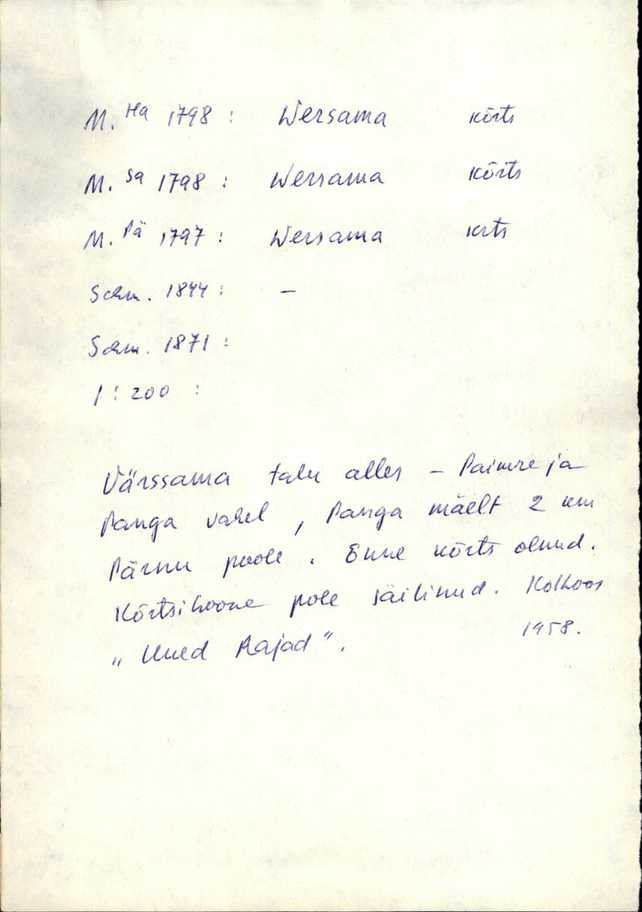 M. Ha 1798 : Wersama kõrts
M. Sa 1798 : Wersama kõrts
M. Pä 1797 : Wersama krts
Schm. 1844 : –
Schm. 1871 :
1 : 200 :
Värssama talu alles – Paimre ja
Panga vahel, Panga mäelt 2 km
Pärnu poole. Enne kõrts olnud.
Kõrtsihoone pole säilinud. Kolhoos
„Uued Rajad". 1958.